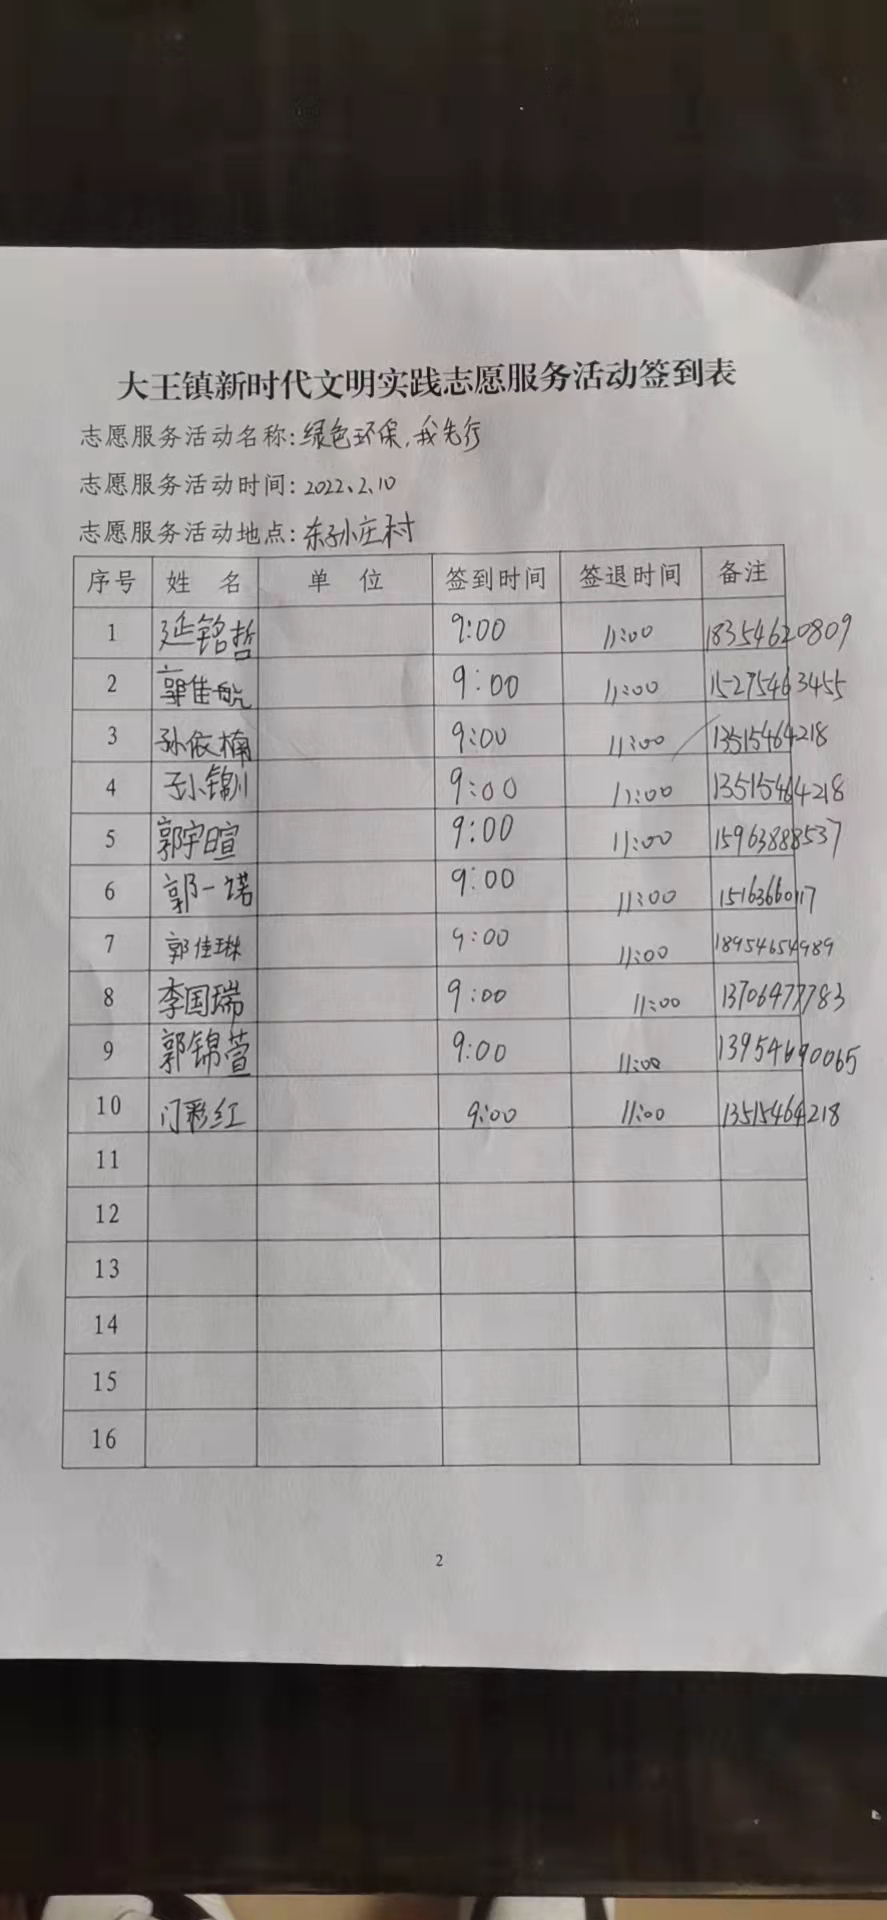 大王镇新时代文明实践志愿服务活动签到表
志愿服务活动名称:绿色环保,我先行
志愿服务活动时间:2022、2、10
志愿服务活动地点:东孙庄村
序号 姓 名 单 位 签到时间 签退时间 备注
1 延铭哲 9:00 11:00 18354620809
2 郭佳航 9:00 11:00 15275463455
3 孙依楠 9:00 11:00 13515464218
4 孙锦川 9:00 11:00 13515464218
5 郭宇暄 9:00 11:00 15963888537
6 郭一诺 9:00 11:00 15163660117
7 郭佳琳 9:00 11:00 18954654989
8 李国瑞 9:00 11:00 13706477783
9 郭锦萱 9:00 11:00 13954690065
10 门彩红 9:00 11:00 13515464218
11
12
13
14
15
16
2